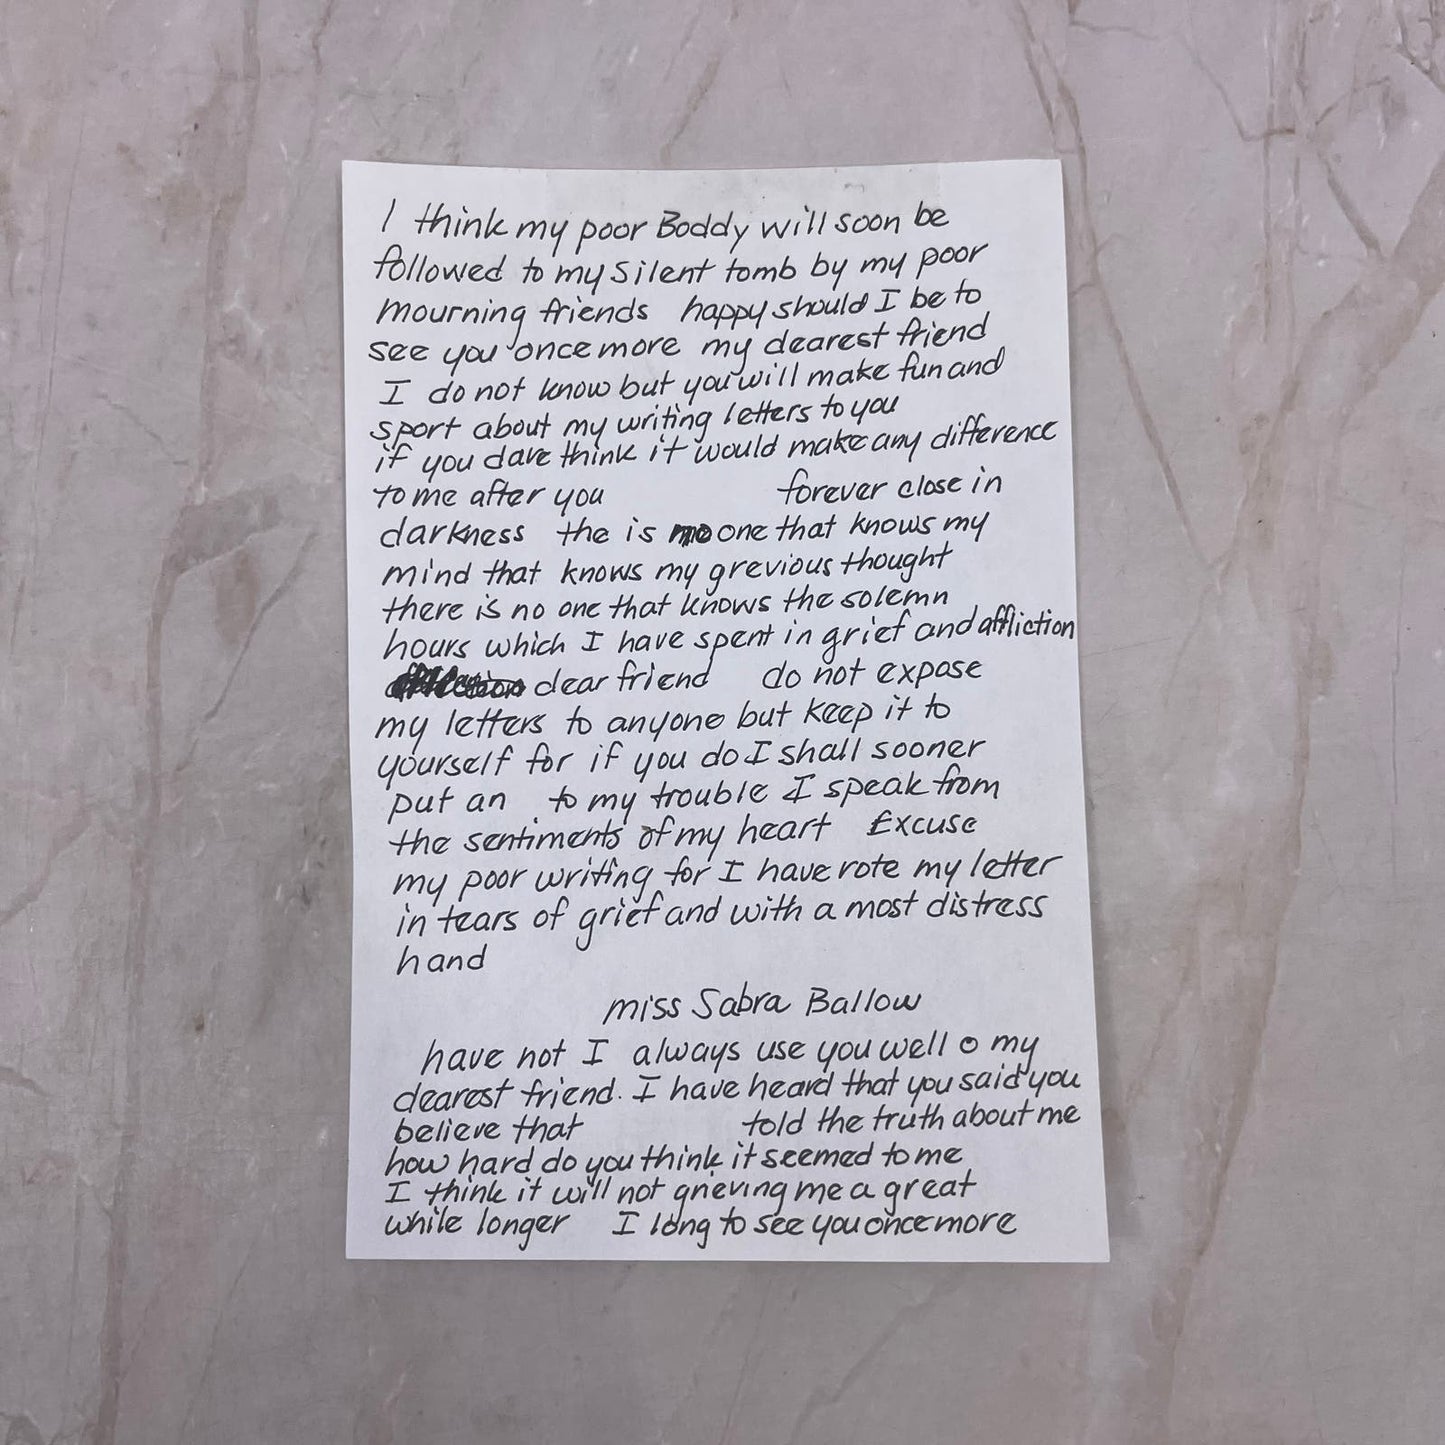 I think my poor Boddy will soon be
followed to my silent tomb by my poor
mourning friends happy should I be to
see you once more my dearest friend
I do not know but you will make fun and
sport about my writing letters to you
if you dare think it would make any difference
to me after you forever close in
darkness the is no one that knows my
mind that knows my grevious thought
there is no one that knows the solemn
hours which I have spent in grief and affliction
dear friend do not expose
my letters to anyone but keep it to
yourself for if you do I shall sooner
put an to my trouble I speak from
the sentiments of my heart Excuse
my poor writing for I have rote my letter
in tears of grief and with a most distress
hand
miss Sabra Ballow
have not I always use you well o my
dearest friend. I have heard that you said you
believe that told the truth about me
how hard do you think it seemed to me
I think it will not grieving me a great
while longer I long to see you once more